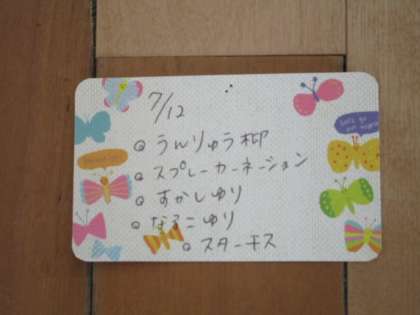 7/12
○ うんりゅう柳
○ スプレーカーネーション
○ すかしゆり
○ なるこゆり
○ スターチス